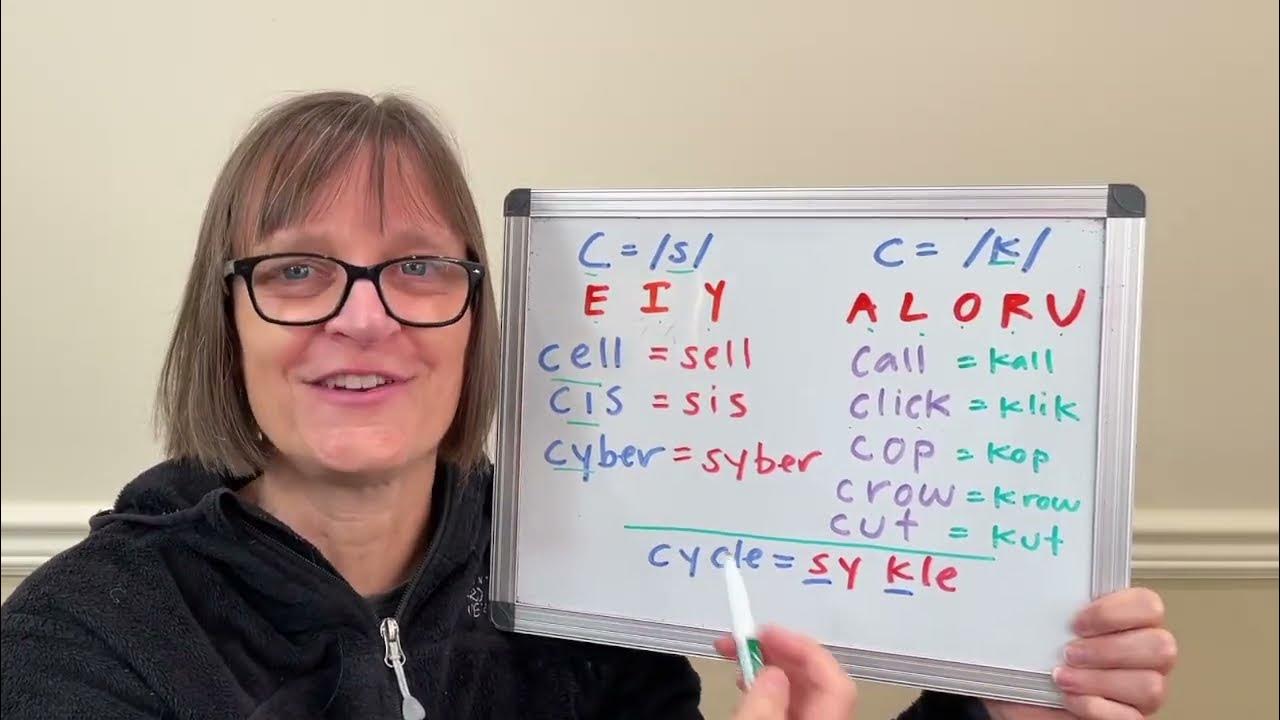 C = /s/
E I Y
cell = sell
cis = sis
cyber = syber
C = /k/
A L O R U
call = kall
click = klik
cop = kop
crow = krow
cut = kut
cycle = sy kle